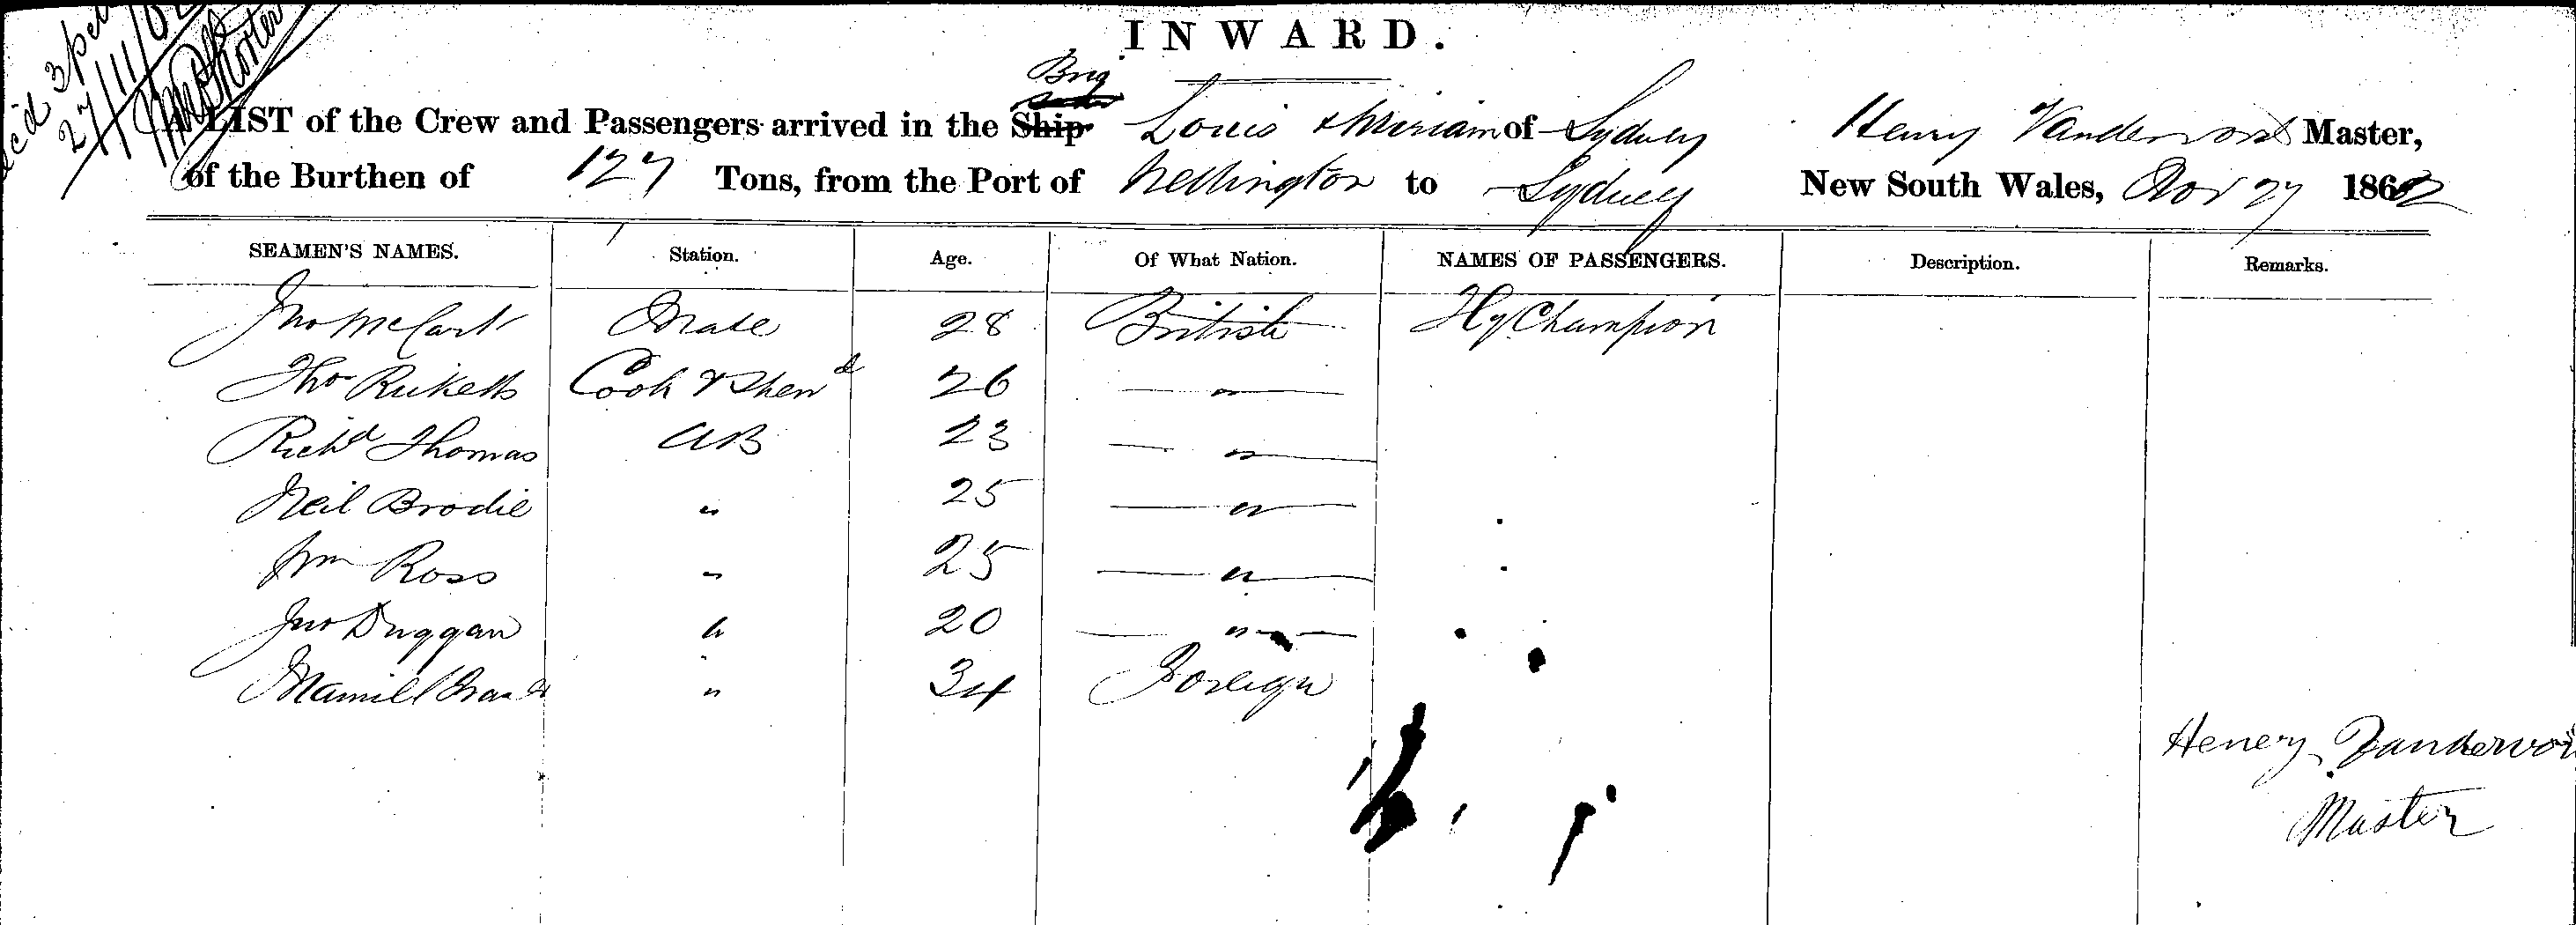 INWARD.
Brig
A LIST of the Crew and Passengers arrived in the Ship Louis & Miriam of Sydney Henry Vandervord Master,
of the Burthen of 127 Tons, from the Port of Wellington to Sydney New South Wales, Nov 27 1862
SEAMEN'S NAMES. Station. Age. Of What Nation. NAMES OF PASSENGERS. Description. Remarks.
Jno McCart Mate 28 British Hy Champion
Thos Ricketts Cook & Stewd 26 — " —
Richd Thomas AB 23 — " —
Neil Brodie " 25 — " —
Wm Ross " 25 — " —
Jno Duggan " 20 — " —
" 34 Foreign
Henery
Master
27/11/62